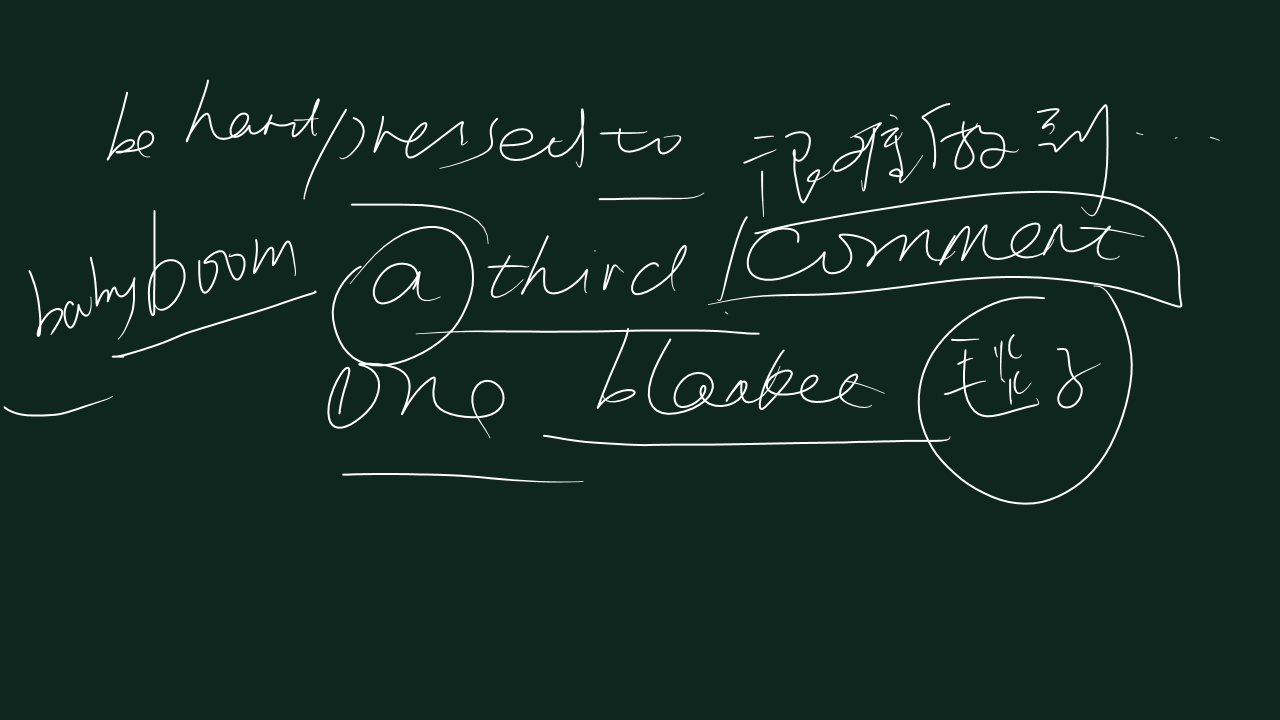 be hard pressed to 很难做到....
babyboom a third comment
one blanket 毛毯子